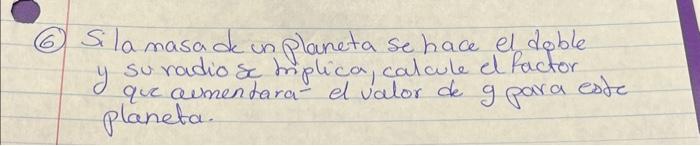 ⑥ Si la masa de un planeta se hace el doble
y su radio se triplica, calcule el factor
que aumentara el valor de g para este
planeta.